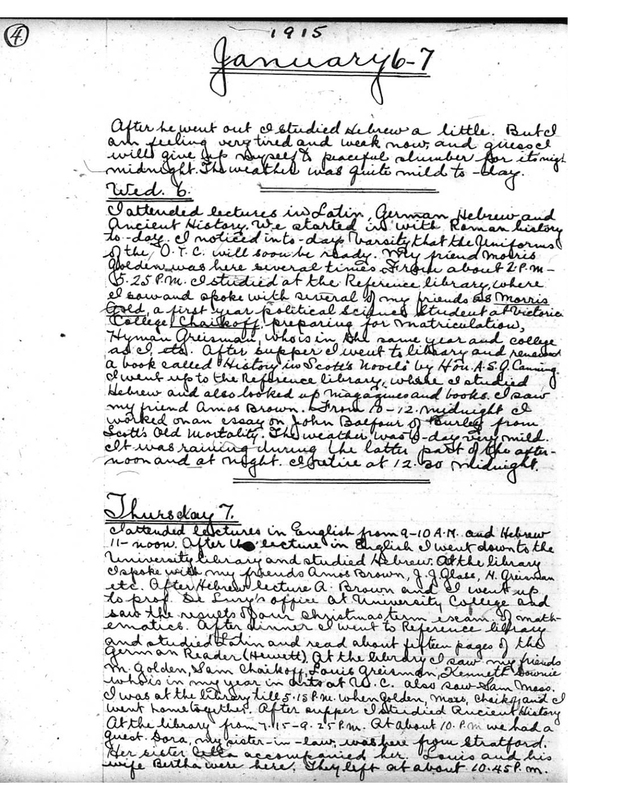 4
1915
January 6-7
After he went out I studied Hebrew a little. But I
am feeling very tired and weak now, and guess I
will give up myself to peaceful slumber for its nigh
midnight. The weather was quite mild to-day.
Wed. 6.
I attended lectures in Latin, German, Hebrew and
Ancient History. We started in with Roman history
to-day. I noticed in to-days Varsity that the Uniforms
of the O.T.C. will soon be ready. My friend Morris
Golden was here several times. From about 2 P.M-
5.25 P.M. I studied at the Reference library, where
I saw and spoke with several of my friends as Morris
Gold, a first year political science student at Victoria
College, Chaikoff, preparing for matriculation,
Hyman Greisman, who is in the same year and college
as I etc. After supper I went to library and renewed
a book called "History in Scott's Novels" by Hon. A.S.G. Canning.
I went up to the Reference library, where I studied
Hebrew and also looked up magazines and books. I saw
my friend Amos Brown. From 10-12 midnight I
worked on an essay on John Balfour of Burley from
Scott's Old Mortality. The weather was to-day very mild.
It was raining during the latter part of the after-
noon and at night. I retire at 12.30 midnight.
Thursday 7.
I attended lectures in English from 9-10 A.M. and Hebrew
11-noon. After the lecture in English I went down to the
University library and studied Hebrew. At the library
I spoke with my friends Amos Brown, J.J. Glass, H. Greisman
etc. After Hebrew lecture A. Brown and I went up
to prof. De Lury's office at University College and
saw the results of our Christmas term exam. of math-
ematics. After dinner I went to Reference library
and studied Latin and read about fifteen pages of the
German Reader (Hewett). At the library I saw my friends
M. Golden, Sam Chaikoff, Louis Greisman, Kenneth Downie
who is in my year in arts at U.C. also saw Sam Moss.
I was at the library till 5.15 P.M. when Golden, Moss, Chaikoff and I
went home together. After supper I studied Ancient History
At the library from 7.15-9.25 P.M. At about 10 P.M we had a
guest. Dora, my sister-in-law, was here from Stratford.
Her sister accompanied her. Louis and his
wife Bertha were here. They left at about 10.45 P.M.